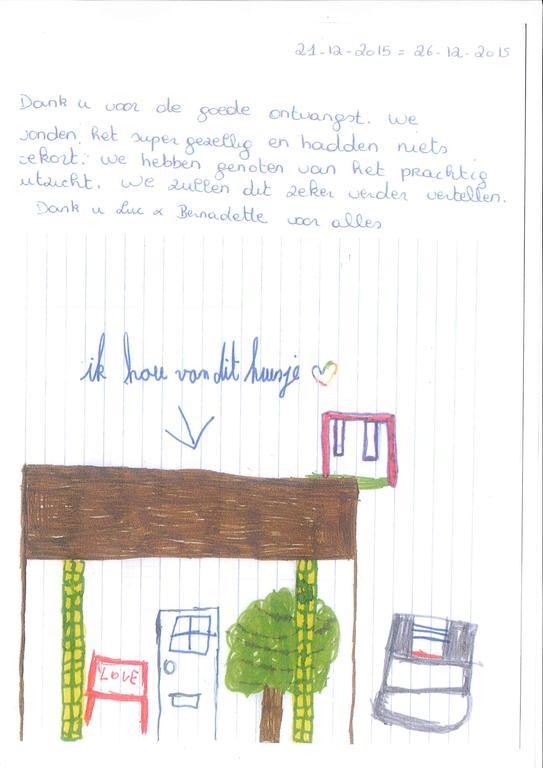 21-12-2015 = 26-12-2015
Dank u voor de goede ontvangst. We
vonden het super gezellig en hadden niets
tekort. We hebben genoten van het prachtig
uitzicht. We zullen dit zeker verder vertellen.
Dank u Luc & Bernadette voor alles
ik hou van dit huisje
LOVE